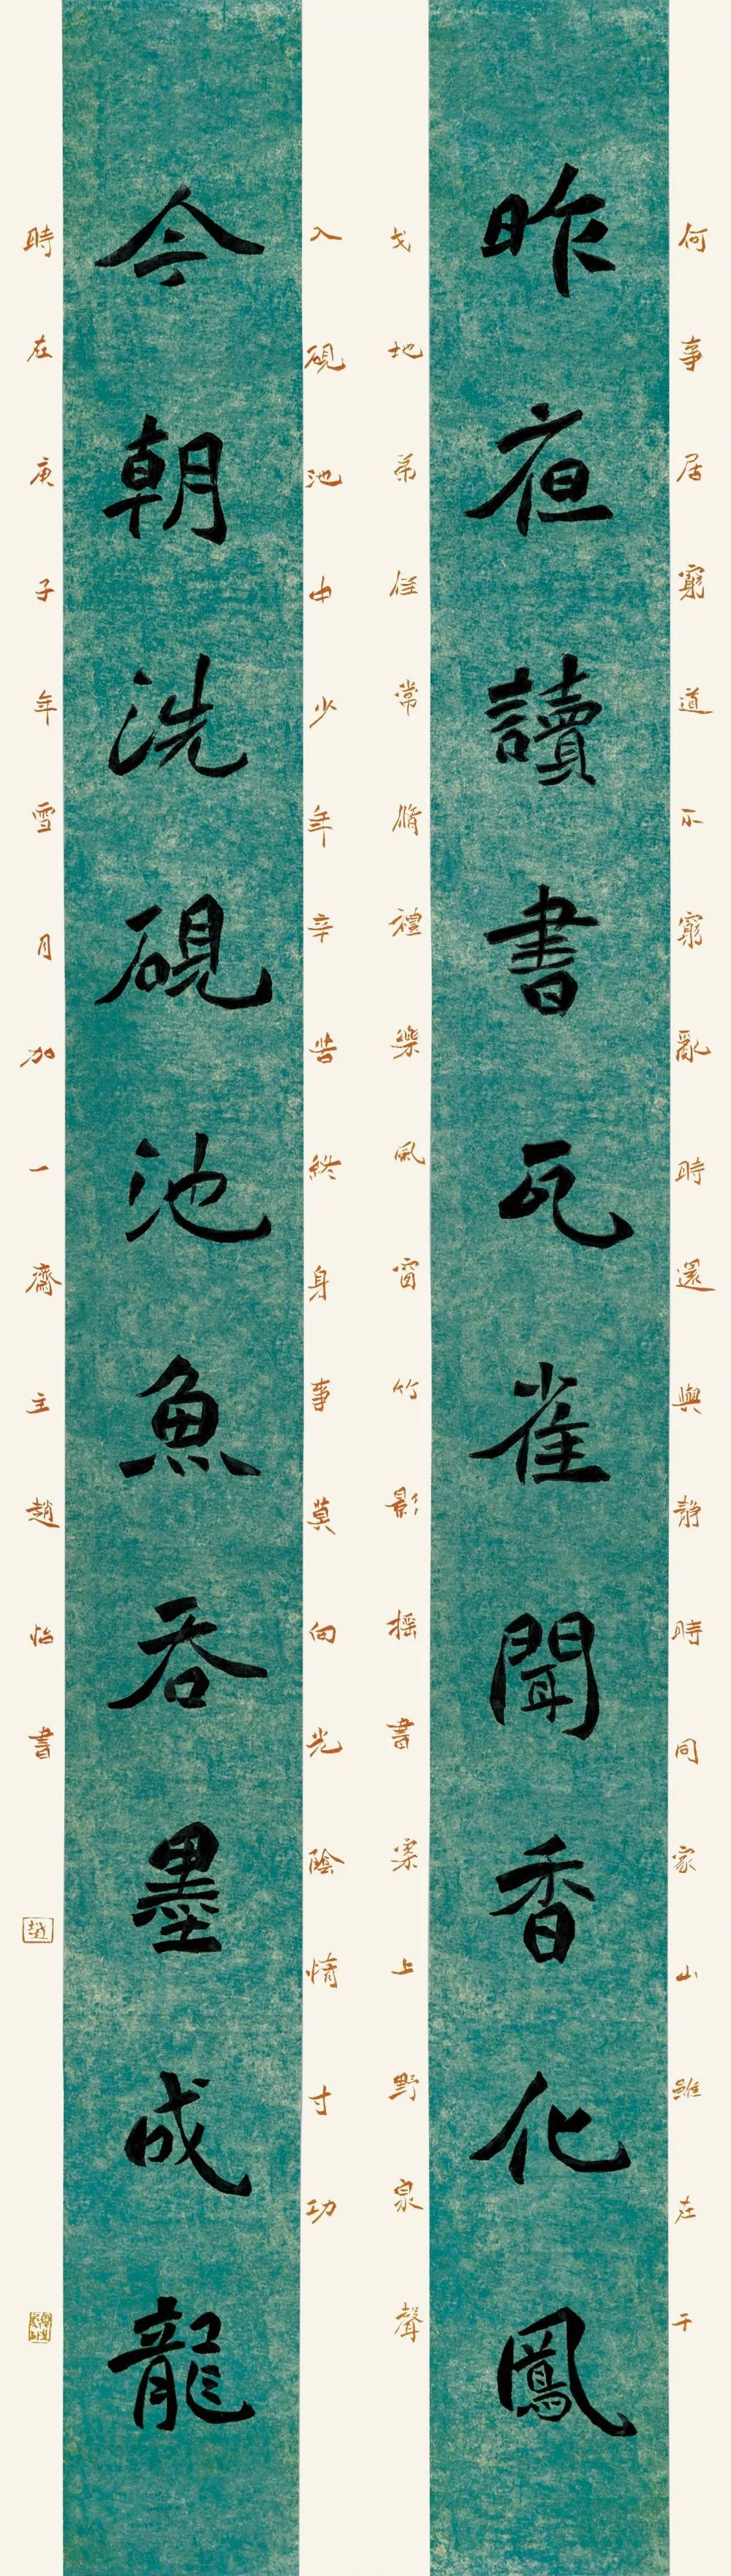 何事居窮道不窮亂時還與靜時同家山雖在干
昨夜讀書瓦雀聞香化鳳
戈地弟侄常脩禮樂風窗竹影搖書案上野泉聲
入硯池中少年辛苦終身事莫向光陰惰寸功
今朝洗硯池魚吞墨成龍
時在庚子年雪月加一齋主趙怡書
趙